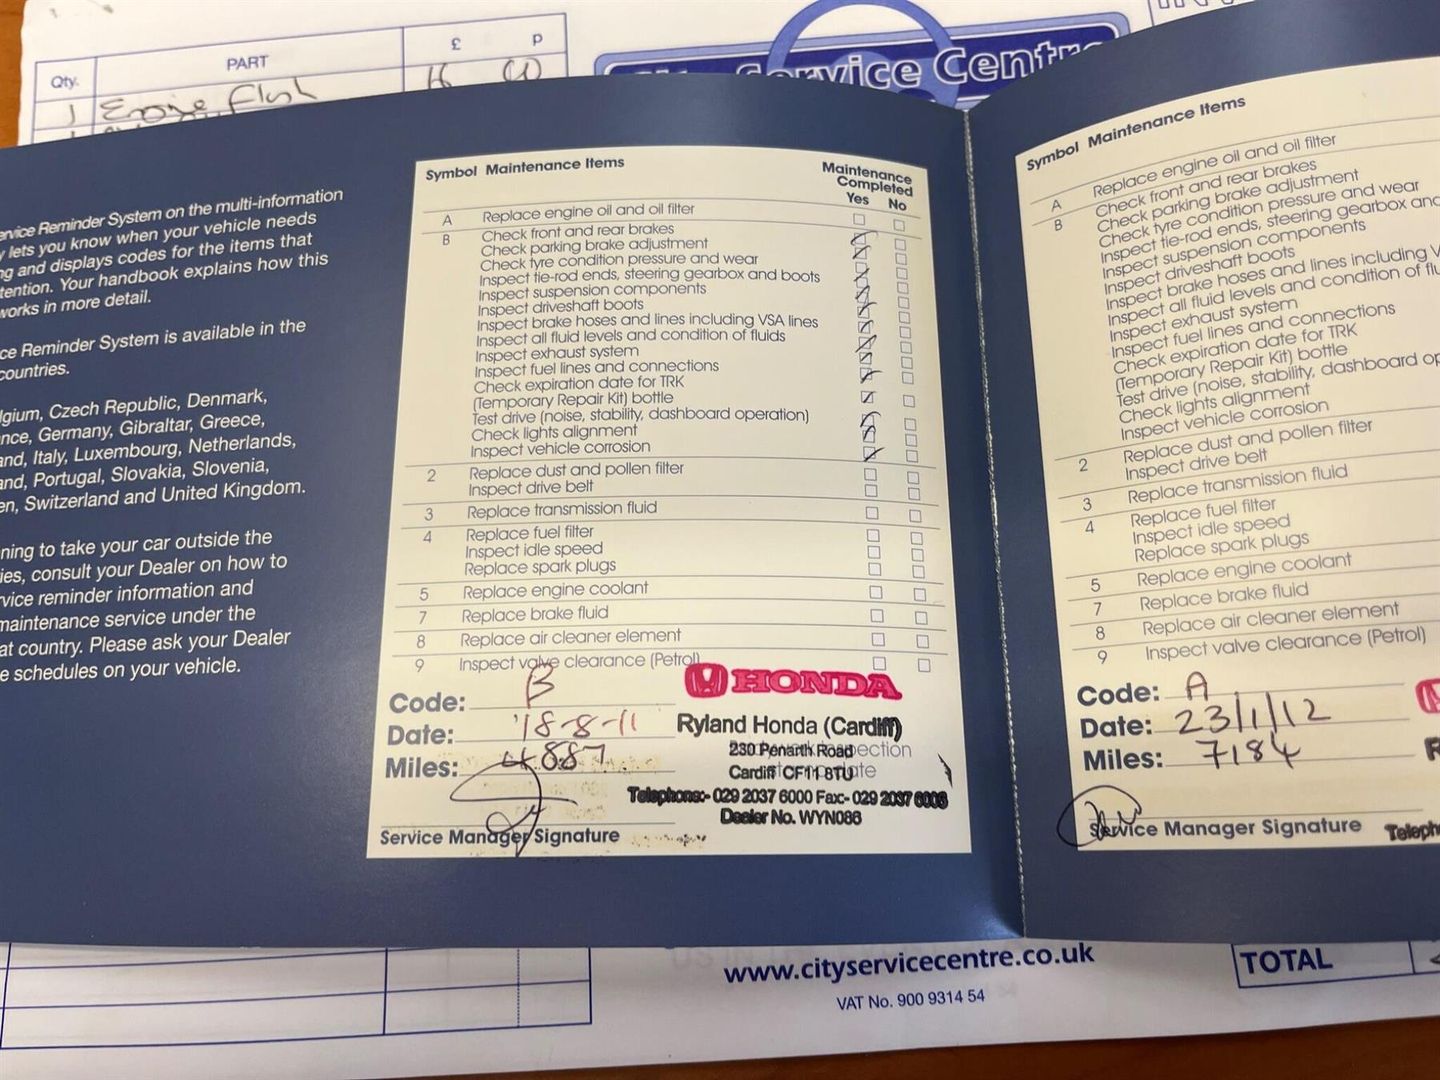 £ p
Qty. PART
1 Engine Flush
Service Centre
Service Reminder System on the multi-information
lets you know when your vehicle needs
and displays codes for the items that
Your handbook explains how this
works in more detail.
Reminder System is available in the
countries.
Czech Republic, Denmark,
Germany, Gibraltar, Greece,
Italy, Luxembourg, Netherlands,
Portugal, Slovakia, Slovenia,
Switzerland and United Kingdom.
to take your car outside the
consult your Dealer on how to
reminder information and
maintenance service under the
country. Please ask your Dealer
schedules on your vehicle.
Symbol Maintenance Items
Maintenance
Completed
Yes No
A Replace engine oil and oil filter
B Check front and rear brakes
Check parking brake adjustment
Check tyre condition pressure and wear
Inspect tie-rod ends, steering gearbox and boots
Inspect suspension components
Inspect driveshaft boots
Inspect brake hoses and lines including VSA lines
Inspect all fluid levels and condition of fluids
Inspect exhaust system
Inspect fuel lines and connections
Check expiration date for TRK
(Temporary Repair Kit) bottle
Test drive (noise, stability, dashboard operation)
Check lights alignment
Inspect vehicle corrosion
2 Replace dust and pollen filter
Inspect drive belt
3 Replace transmission fluid
4 Replace fuel filter
Inspect idle speed
Replace spark plugs
5 Replace engine coolant
7 Replace brake fluid
8 Replace air cleaner element
9 Inspect valve clearance (Petrol)
Code: B
Date: 18-8-11
Miles: 4887
Service Manager Signature
HONDA
Ryland Honda (Cardiff)
230 Penarth Road
Cardiff CF11 8TU
Telephone:- 029 2037 6000 Fax:- 029 2037 6006
Dealer No. WYN086
Symbol Maintenance Items
A Replace engine oil and oil filter
B Check front and rear brakes
Check parking brake adjustment
Check tyre condition pressure and wear
Inspect tie-rod ends, steering gearbox and
Inspect suspension components
Inspect driveshaft boots
Inspect brake hoses and lines including
Inspect all fluid levels and condition of
Inspect exhaust system
Inspect fuel lines and connections
Check expiration date for TRK
(Temporary Repair Kit) bottle
Test drive (noise, stability, dashboard
Check lights alignment
Inspect vehicle corrosion
2 Replace dust and pollen filter
Inspect drive belt
3 Replace transmission fluid
4 Replace fuel filter
Inspect idle speed
Replace spark plugs
5 Replace engine coolant
7 Replace brake fluid
8 Replace air cleaner element
9 Inspect valve clearance (Petrol)
Code: A
Date: 23/1/12
Miles: 7184
Service Manager Signature
www.cityservicecentre.co.uk
VAT No. 900 9314 54
TOTAL